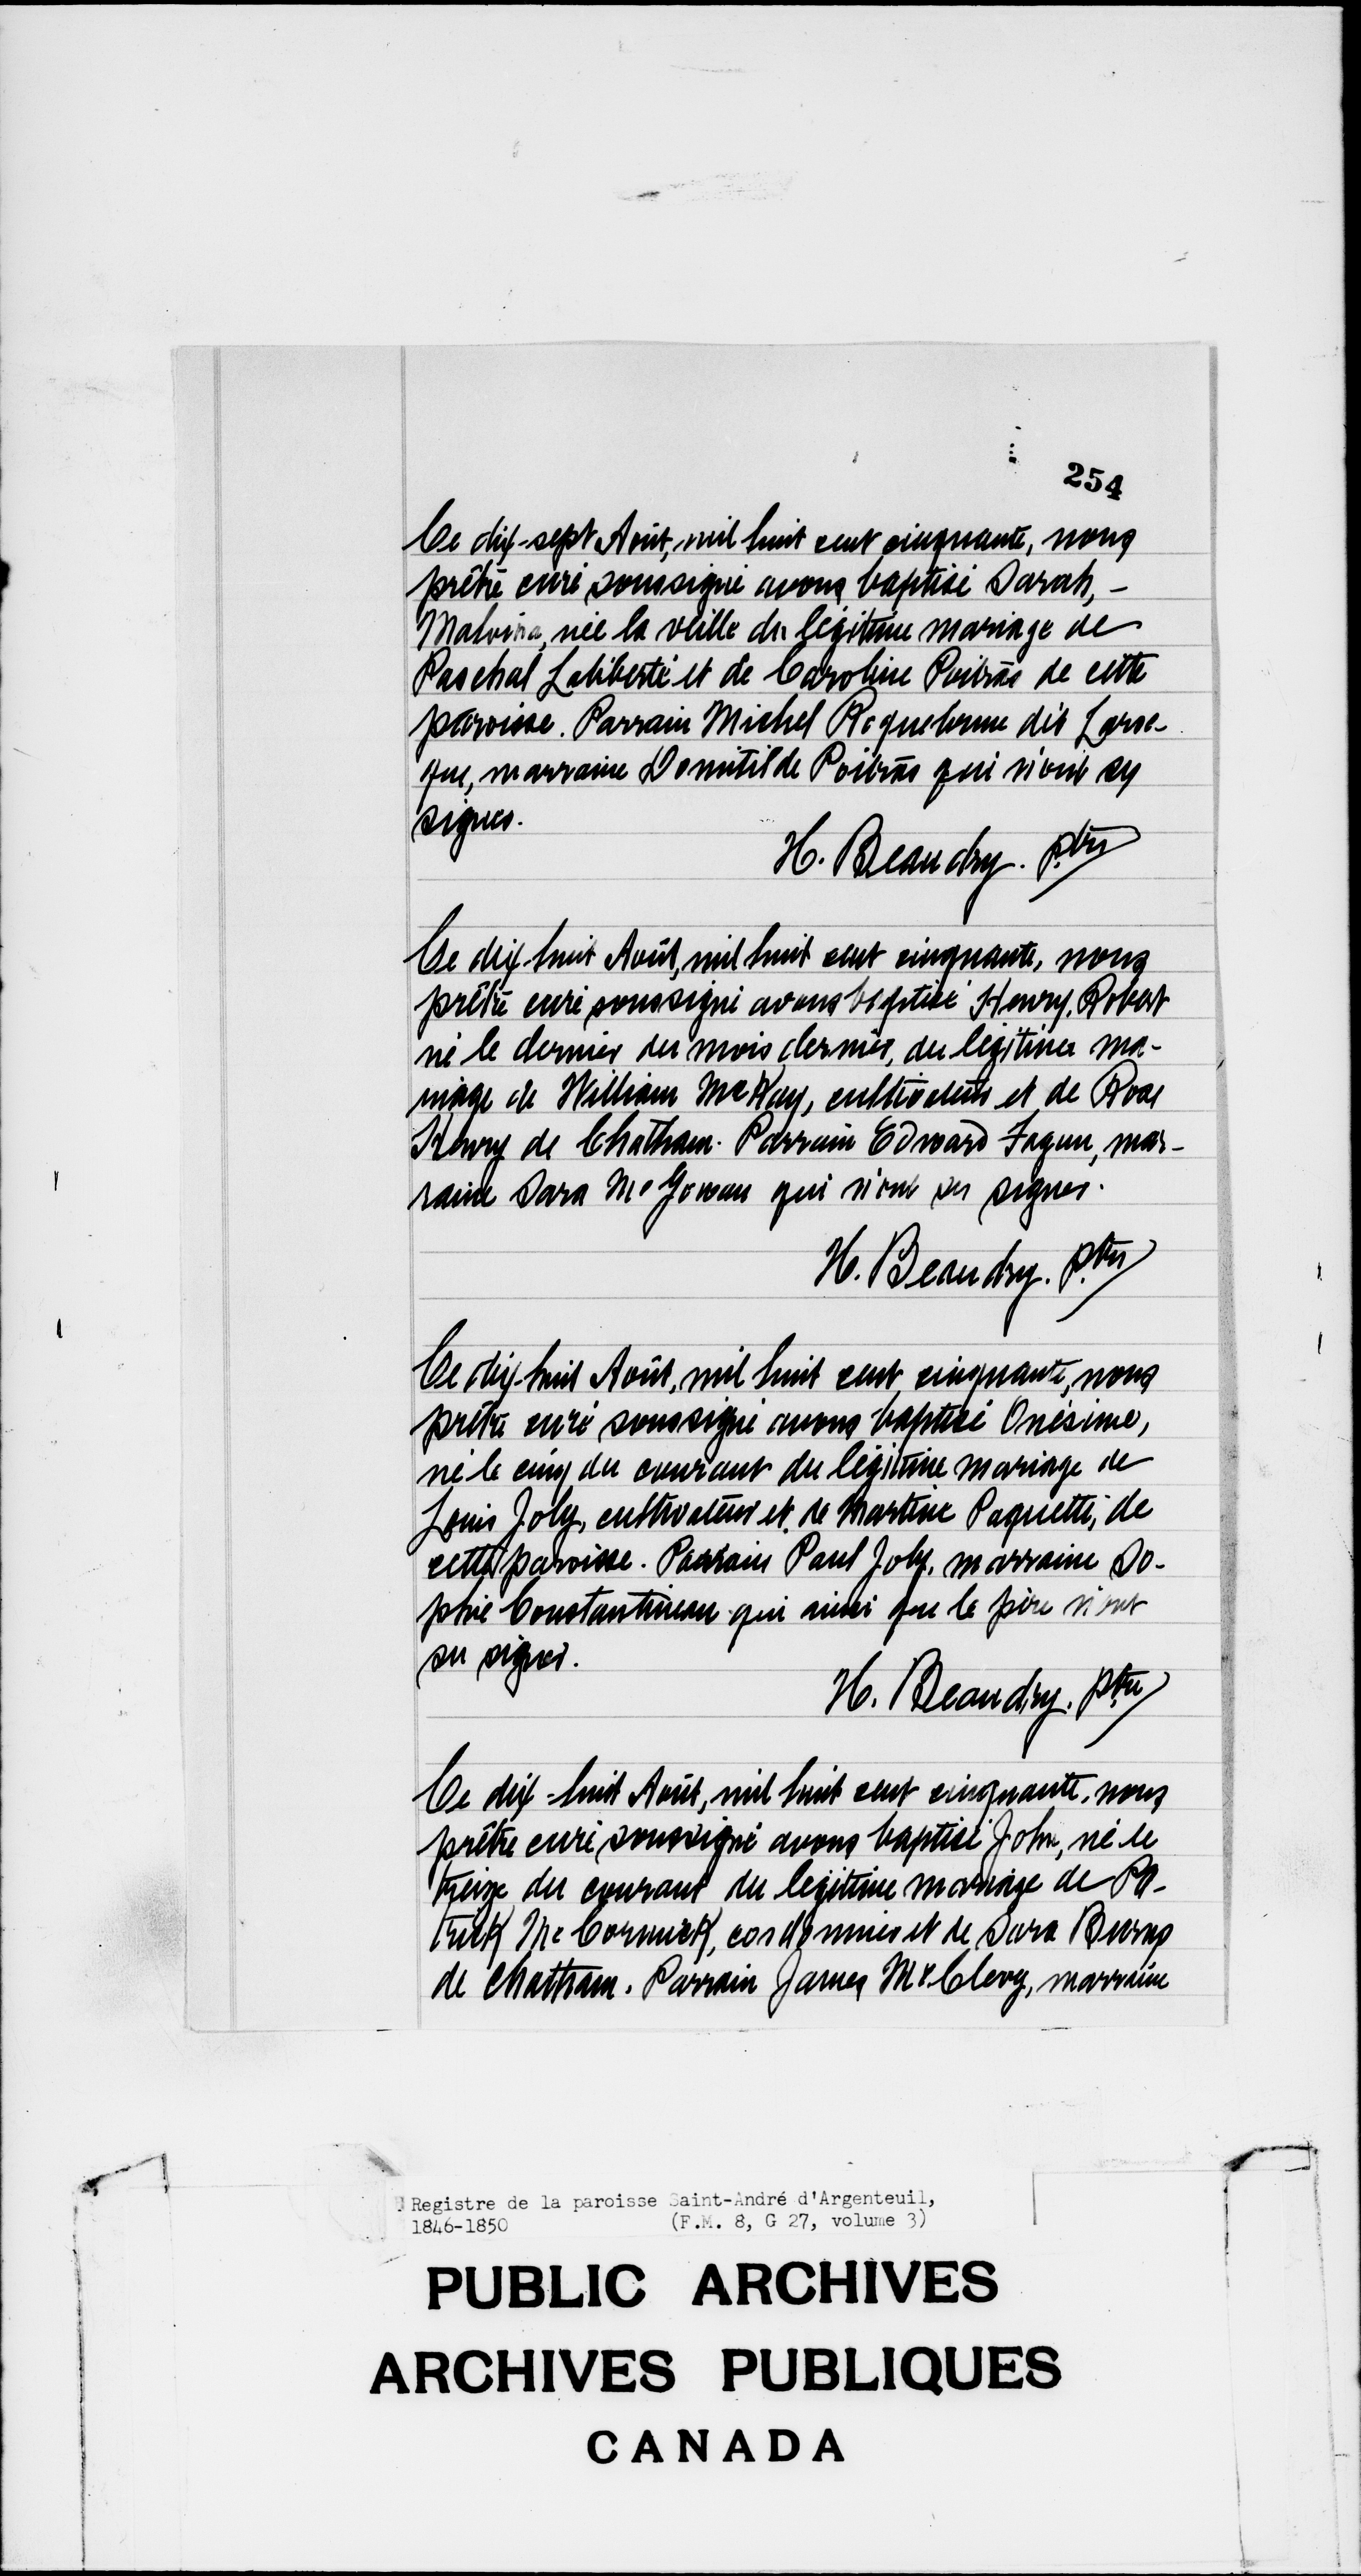 254
Ce dix-sept Août, mil huit cent cinquante, nous
prêtre curé soussigné avons baptisé Sarah, -
Malvina, née la veille du légitime mariage de
Paschal Laliberté et de Caroline Poitras de cette
paroisse. Parrain Michel Roquebrune dit Laroc-
que, marraine Domitilde Poitras qui n'ont su
signer.
H. Beaudry. ptre
Ce dix-huit Août, mil huit cent cinquante, nous
prêtre curé soussigné avons baptisé Henry, Robert
né le dernier du mois dernier, du légitime ma-
riage de William McKay, cultivateur et de Rose
Henry de Chatham. Parrain Edward Fagan, mar-
raine Sara McGowan qui n'ont su signer.
H. Beaudry. ptre
Ce dix-huit Août, mil huit cent cinquante, nous
prêtre curé soussigné avons baptisé Onésime,
né le cinq du courant du légitime mariage de
Louis Joly, cultivateur et de Martine Paquette, de
cette paroisse. Parrain Paul Joly, marraine So-
phie Constantineau qui ainsi que le père n'ont
su signer.
H. Beaudry. ptre
Ce dix-huit Août, mil huit cent cinquante, nous
prêtre curé soussigné avons baptisé John, né le
treize du courant du légitime mariage de Pa-
trick McCormick, cordonnier et de Sara Burns
de Chatham. Parrain James McClevy, marraine
Registre de la paroisse Saint-André d'Argenteuil,
1846-1850 (F.M. 8, G 27, volume 3)
PUBLIC ARCHIVES
ARCHIVES PUBLIQUES
CANADA